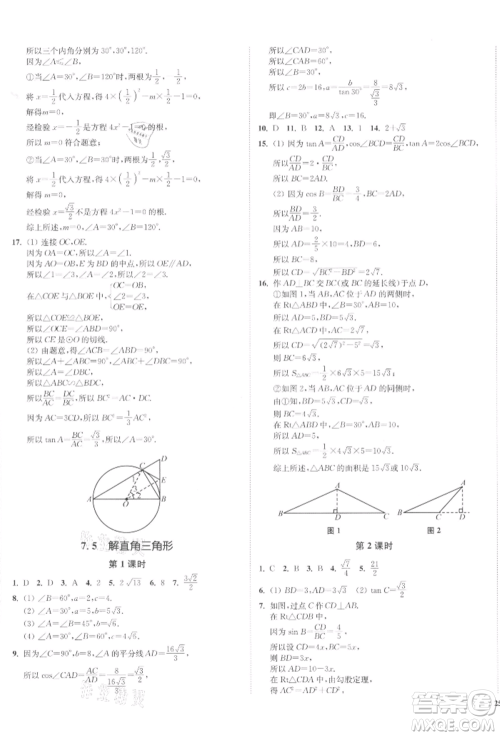 所以三个内角分别为 30°, 30°, 120°.
因为∠A≤∠B,
①当∠A=30°, ∠B=120°时,两根为 1/2, -1/2,
将 x=1/2 代入方程,得 4×(1/2)²-m×1/2-1=0,
解得 m=0,
经检验 x=-1/2 是方程 4x²-1=0 的根,
所以 m=0 符合题意;
②当∠A=30°, ∠B=30°时,两根为 1/2, √3/2,
将 x=1/2 代入方程,得 4×(1/2)²-m×1/2-1=0,
解得 m=0,
经检验 x=√3/2 不是方程 4x²-1=0 的根.
综上所述,m=0, ∠A=30°, ∠B=120°.
17. (1) 连接 OC,OE.
因为 OA=OC,所以∠A=∠1.
因为 AO=OB,E 为 BD 的中点,
所以 OE∥AD,所以∠1=∠3, ∠A=∠2,
所以∠2=∠3.
在△COE 与△BOE 中,
OC=OB,
∠3=∠2,
OE=OE,
所以△COE≌△BOE,
所以∠OCE=∠ABD=90°,
所以 CE 是⊙O 的切线.
(2) 由题意,得∠ACB=90°,
所以∠A+∠ABC=∠A+∠D=90°,
所以∠ABC=∠D,
所以△ABC∽△BDC,
所以 BC/AC=DC/BC,即 BC²=AC·DC,
因为
所以 tan A=BC/AC=√3/3.
A O B C D E
7.5 解直角三角形
第 1 课时
1. D 2. D 3. A 4. 2 5. 2√13 6. 3√2/2
8. (1) ∠A=60°, a=6√3, c=12;
(2) ∠A=60°, ∠B=30°, b=√3;
(3) ∠A=60°, ∠B=30°, a=6√3;
(4) ∠B=30°, b=5, c=10.
9. 因为∠C=90°, b=8, ∠A 的平分线 AD=16√3/3,
所以 cos∠CAD=AC/AD=8/(16√3/3)=√3/2,
所以∠CAD=30°,
所以∠CAB=60°, ∠B=30°,
所以 c=2b=16, a=b/tan 30°=8/(√3/3)=8√3,
即∠B=30°, a=8√3, c=16.
10. D 11. B 12. A 13. 1 14. 2+√3
15. (1) 因为 tan A=CD/AD, cos∠BCD=CD/BC, tan A=2cos∠BCD,
所以 CD/AD=2·CD/BC,
所以 BC=2AD.
(2) 因为 cos B=BD/BC=3/4, BC=2AD,
所以 BD/AD=3/2.
因为 AB=10,
所以 AD=2/5×10=4, BD=10-4=6,
所以 BC=8,
所以 CD=√(BC²-BD²)=2√7.
16. 作 AD⊥BC 交 BC(或 BC 的延长线)于点 D.
①如图 1,当 AB,AC 位于 AD 的两侧时,
在 Rt△ABD 中,因为∠B=30°, AB=10,
所以 AD=5, BD=5√3.
在 Rt△ACD 中,因为 AC=2√7,
所以 CD=√((2√7)²-5²)=√3,
所以 BC=BD+CD=6√3,
所以 S△ABC=1/2×6√3×5=15√3;
②如图 2,当 AB,AC 在 AD 的同侧时,
由①知,BD=5√3, CD=√3,
所以 BC=BD-CD=4√3,
所以 S△ABC=1/2×4√3×5=10√3.
综上所述,△ABC 的面积是 15√3 或 10√3.
A B D C
图 1
A B C D
图 2
第 2 课时
1. C 2. D 3. A 4. √7/4 5. 21/2
6. (1) BD=3, AD=3√3; (2) tan C=√3/2
7. 如图,过点 C 作 CD⊥AB,
在 Rt△BCD 中,
因为 sin B=CD/BC=4/5,
所以设 CD=4x, BC=5x,
则 BD=3x.
在 Rt△ACD 中,由勾股定理,